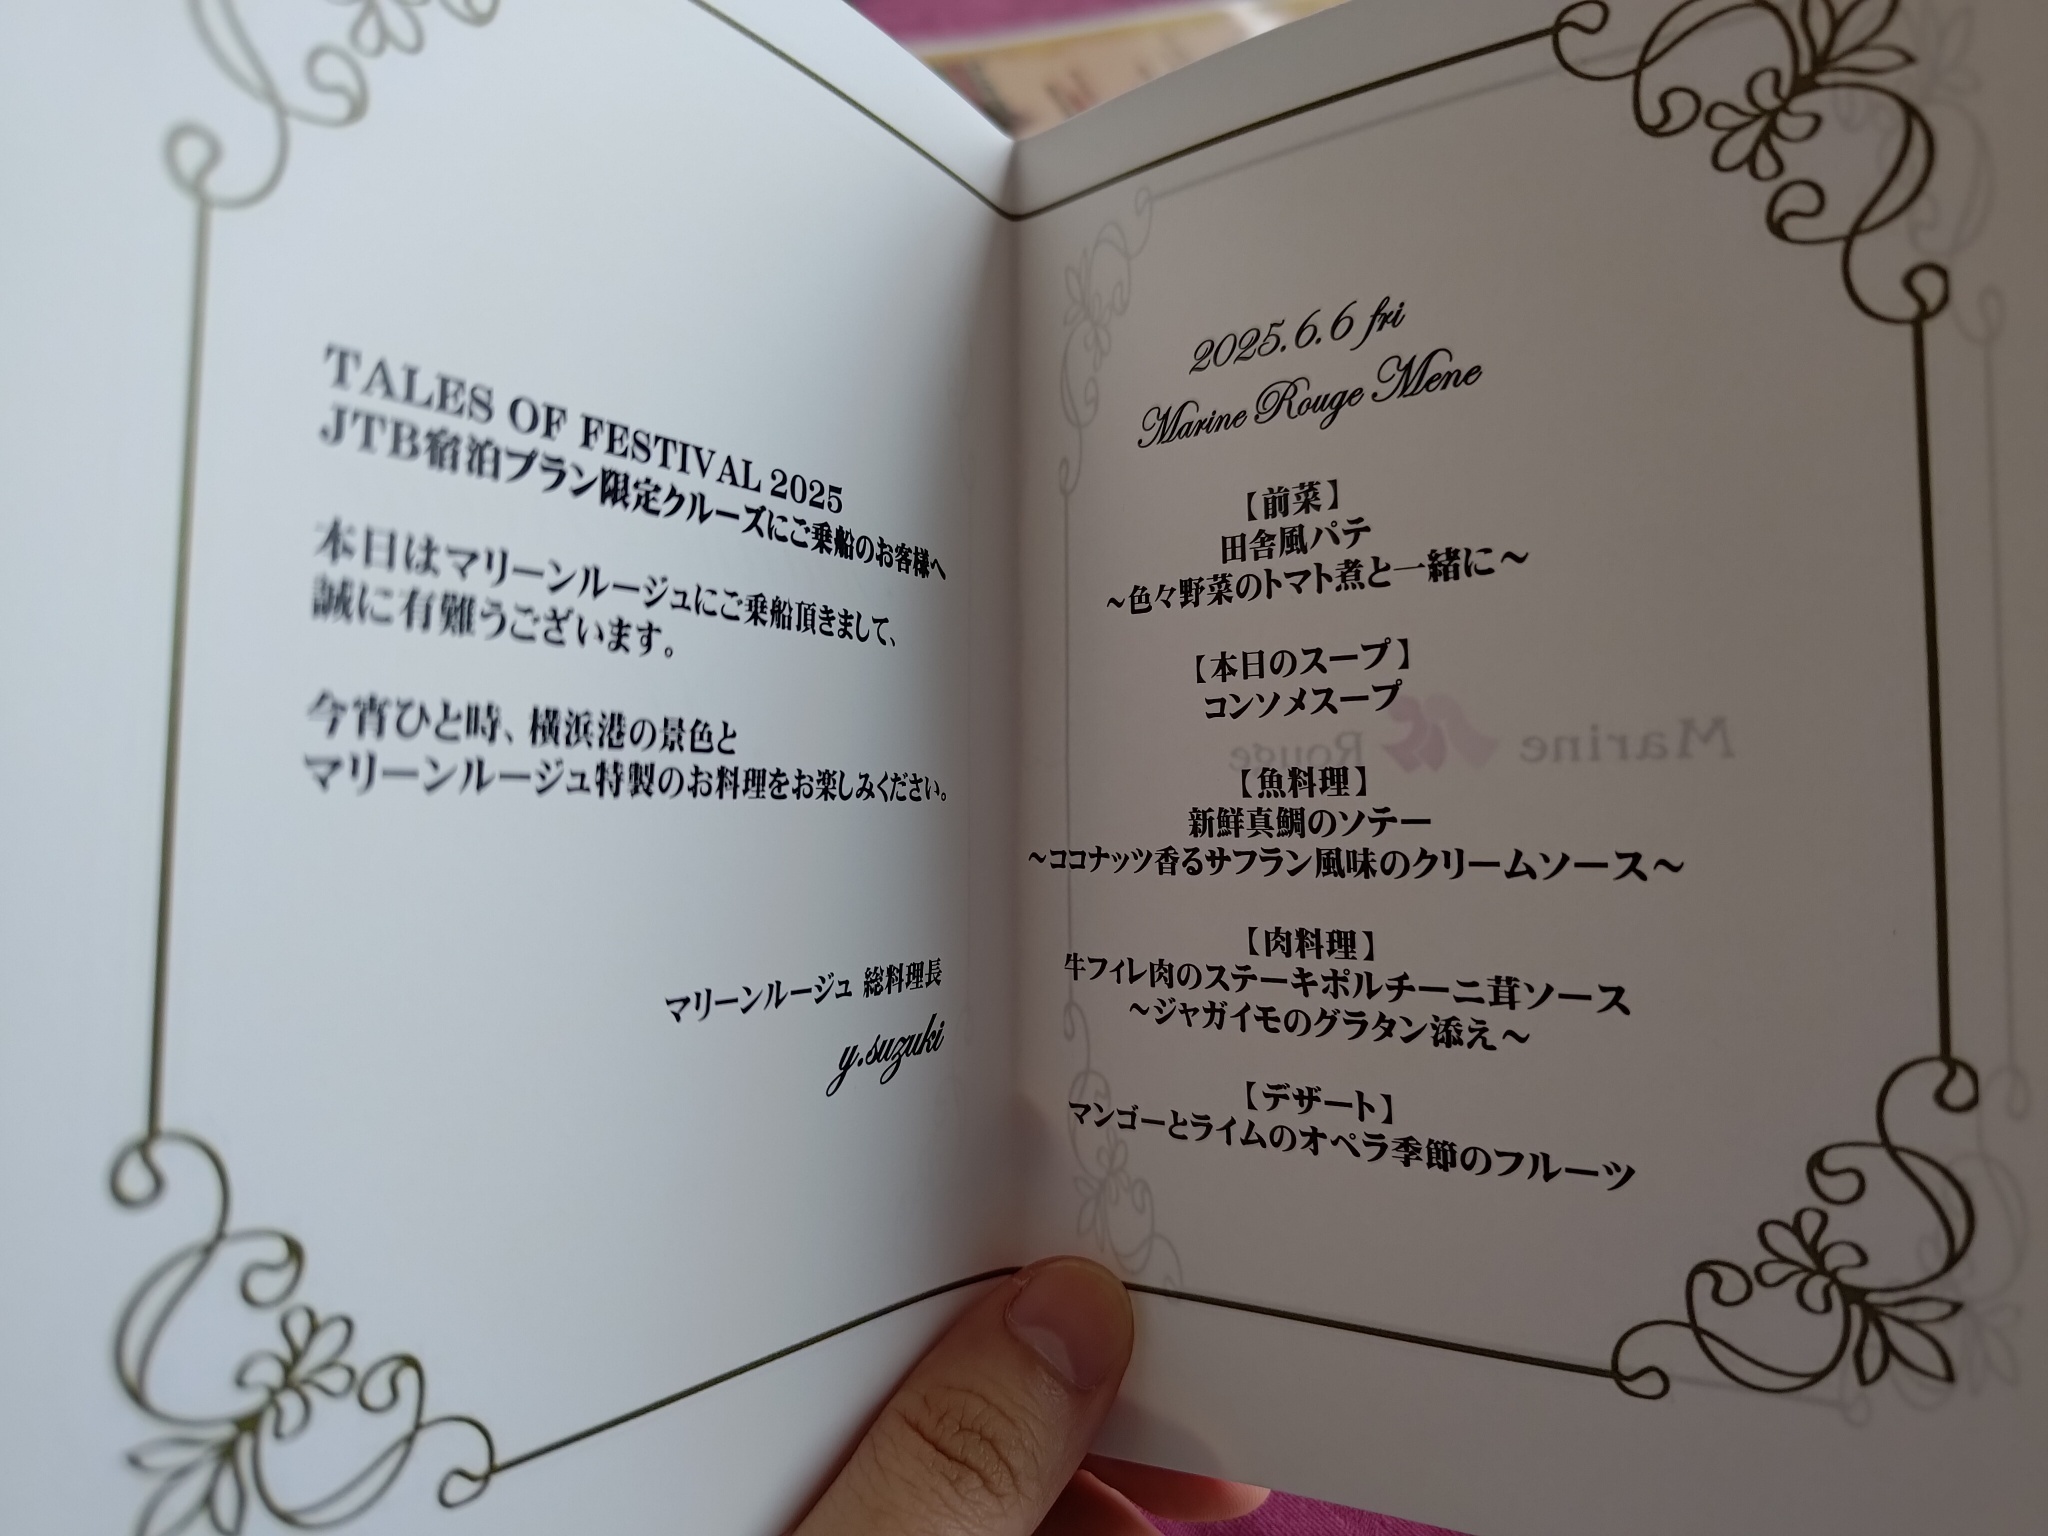 TALES OF FESTIVAL 2025
JTB宿泊プラン限定クルーズにご乗船のお客様へ
本日はマリーンルージュにご乗船頂きまして、
誠に有難うございます。
今宵ひと時、横浜港の景色と
マリーンルージュ特製のお料理をお楽しみください。
マリーンルージュ 総料理長
y.suzuki
2025.6.6 fri
Marine Rouge Mene
【前菜】
田舎風パテ
~色々野菜のトマト煮と一緒に~
【本日のスープ】
コンソメスープ
【魚料理】
新鮮真鯛のソテー
~ココナッツ香るサフラン風味のクリームソース~
【肉料理】
牛フィレ肉のステーキポルチーニ茸ソース
~ジャガイモのグラタン添え~
【デザート】
マンゴーとライムのオペラ季節のフルーツ
Marine Rouge